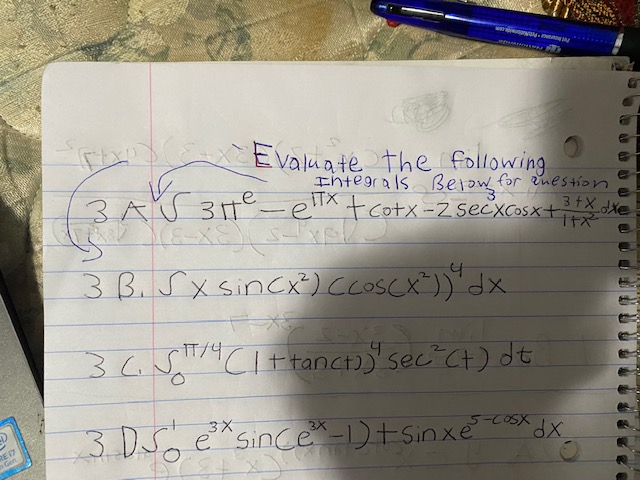 Evaluate the following
Integrals Below for question 3
3 A ∫ 3π^e - e^πx + cotx - 2 secxcosx + (3+x)/(1+x²) dx
3 B. ∫ x sin(x²) (cos(x²))^4 dx
3 C. ∫_0^π/4 (1+tan(t))^4 sec²(t) dt
3 D ∫_0^1 e^3x sin(e^3x - 1) + sinxe^5-cosx dx.